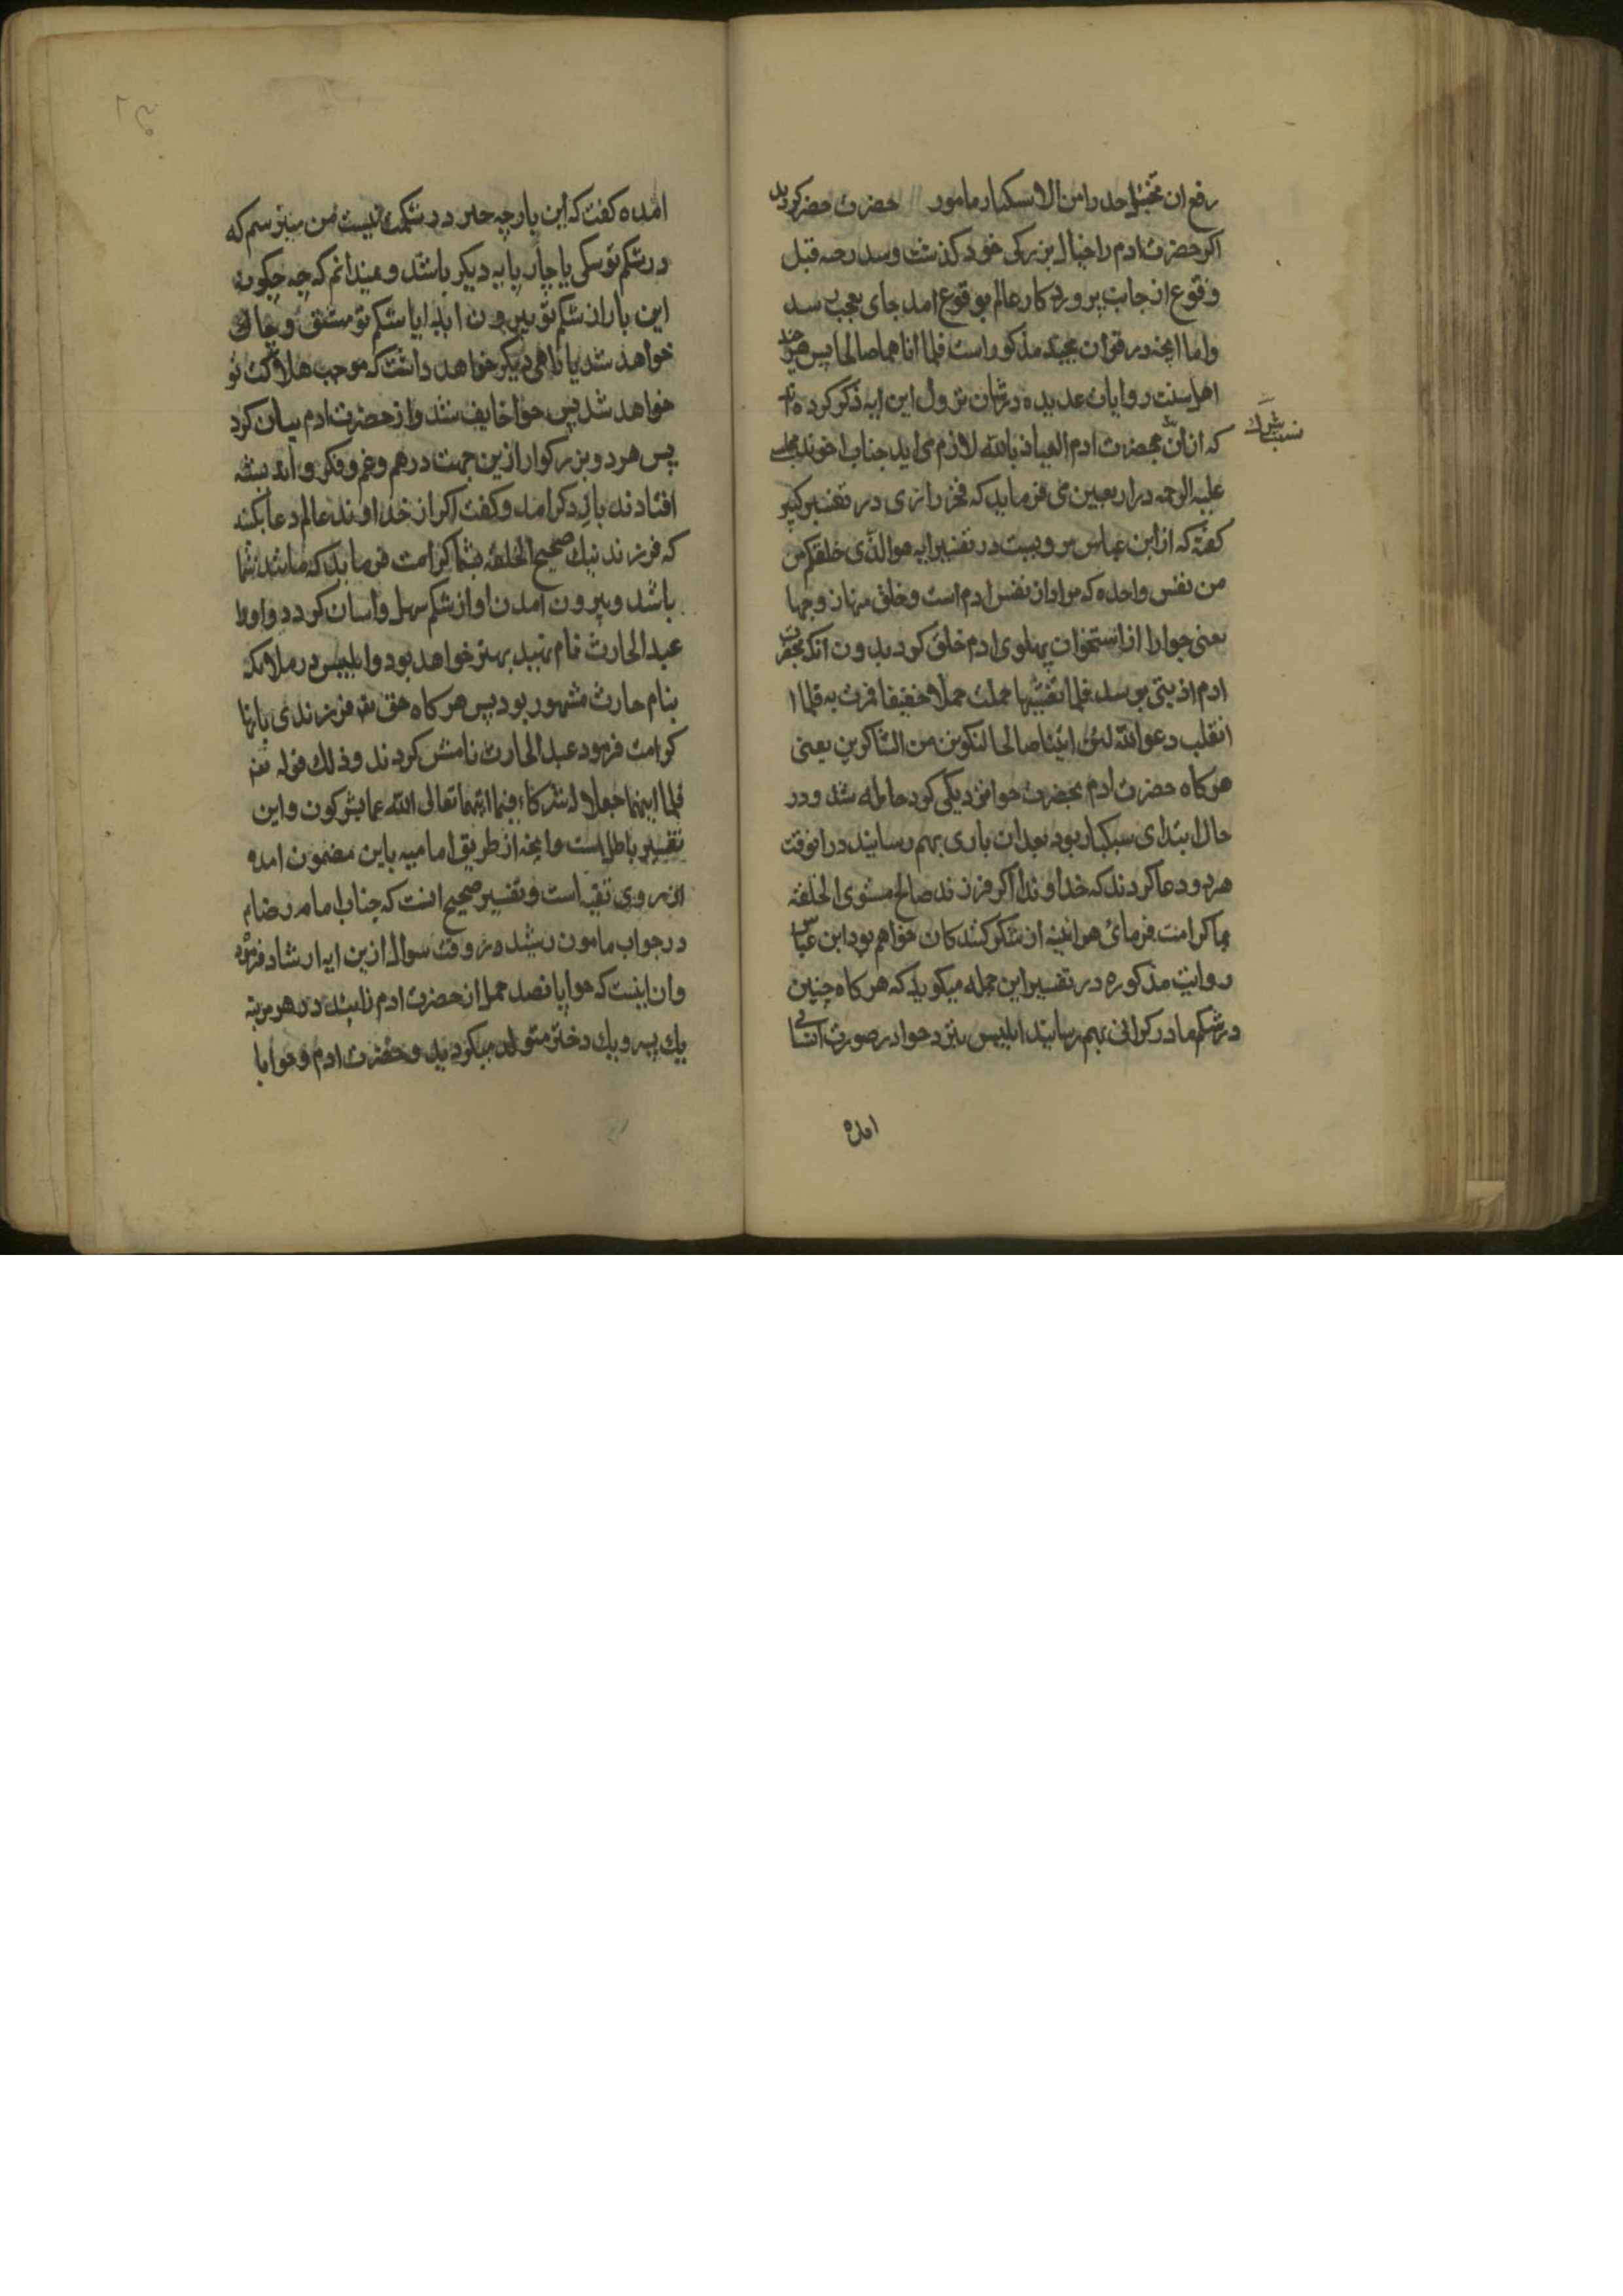 رفع ان تخیل احد را من الاستکبار مامور حضرت خضر کردید
اکر حضرت ادم را خیال بزرکی خود کذشت و سد رحه قبل
وقوع از جانب پروردکار عالم بوقوع امد جای تعجب
و اما انچه در قران مجید مذکور است فلما اتاهما صالحا پس
اهل سنت روایات عدیده در شان نزول این ایه ذکر کرده
که از ان بحضرت ادم العیاذ بالله لازم می اید جناب اخوند مجلسی
نسبت شرک
علیه الرحمه در اربعین می فرماید که فخر رازی در تفسیر کبیر
کفته که از ابن عباس مرویست در تفسیر ایه هو الذی خلقکم
من نفس واحده که مراد از نفس ادم است و خلق منها زوجها
یعنی حوا را از استخوان پهلوی ادم خلق کردید بدون انکه
ادم اذیتی برسد فلما تغشیها حملت حملا خفیفا فمرت به فلما
اثقلت دعوا الله لئن اتیتنا صالحا لنکونن من الشاکرین یعنی
هر کاه حضرت ادم بحضرت حوا نزدیکی کرد حامله شد و در
حال ابتدای سبکبار بود بعد ان باری بهم رسانید در انوقت
هر دو دعا کردند که خداوندا اکر فرزند صالح مستوی الخلقه
بما کرامت فرمای هر اینه از شکر کنندکان خواهم بود ابن عباس
روایت مذکوره در تفسیر این جمله میکوید که هر کاه چنین
در شکم مادر کرانی بهم رسانید ابلیس نزد حوا در صورت انسانی
امده
امده کفت که این پارچه در شکمت نیست من میترسم که
در شکم تو سکی یا چارپایه دیکر باشد و نمیدانم که چه چکونه
این بار از شکم تو بیرون اید ایا شکم تو منشق و چاک
خواهد شد یا راهی دیکر خواهد داشت که موجب هلاکت تو
خواهد شد پس حوا خایف شد و از حضرت ادم بیان کرد
پس هر دو بزرکوار ازین جهت در هم و غم و فکر و اندیشه
افتادند باز دکر امد و کفت اکر از خداوند عالم دعا بکنم
که فرزند نیک صحیح الخلقه بشما کرامت فرماید که مانند شما
باشد و بیرون امدن او از شکم سهل و اسان کردد و او را
عبد الحارث نام نهید بهتر خواهد بود و ابلیس در ملائکه
بنام حارث مشهور بود پس هر کاه حق تعالی فرزندی بانها
کرامت فرمود عبد الحارث نامش کردند و ذلک قوله تع
فلما اتیهما جعلا له شرکاء فیما اتیهما تعالی الله عما یشرکون و این
تفسیر باطل است و انچه از طریق امامیه باین مضمون امده
از روی تقیه است و تفسیر صحیح انست که جناب امام رضا م
در جواب مامون رشید در وقت سوال ازین ایه ارشاد فرموده
و ان اینست که حوا پانصد حمل از حضرت ادم زایید در هر مرتبه
یک پسر و یک دختر متولد میکردید و حضرت ادم و حوا با